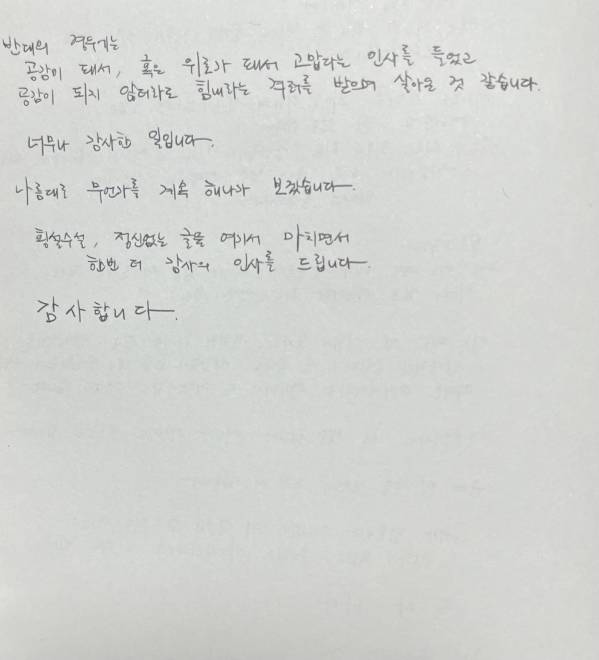 반대의 경우에는
공감이 돼서, 혹은 위로가 돼서 고맙다는 인사를 들었고
공감이 되지 않더라도 힘내라는 격려를 받으며 살아온 것 같습니다.
너무나 감사한 일입니다.
나름대로 무언가를 계속 해나가 보겠습니다.
횡설수설, 정신없는 글을 여기서 마치면서
한번 더 감사의 인사를 드립니다.
감사합니다.